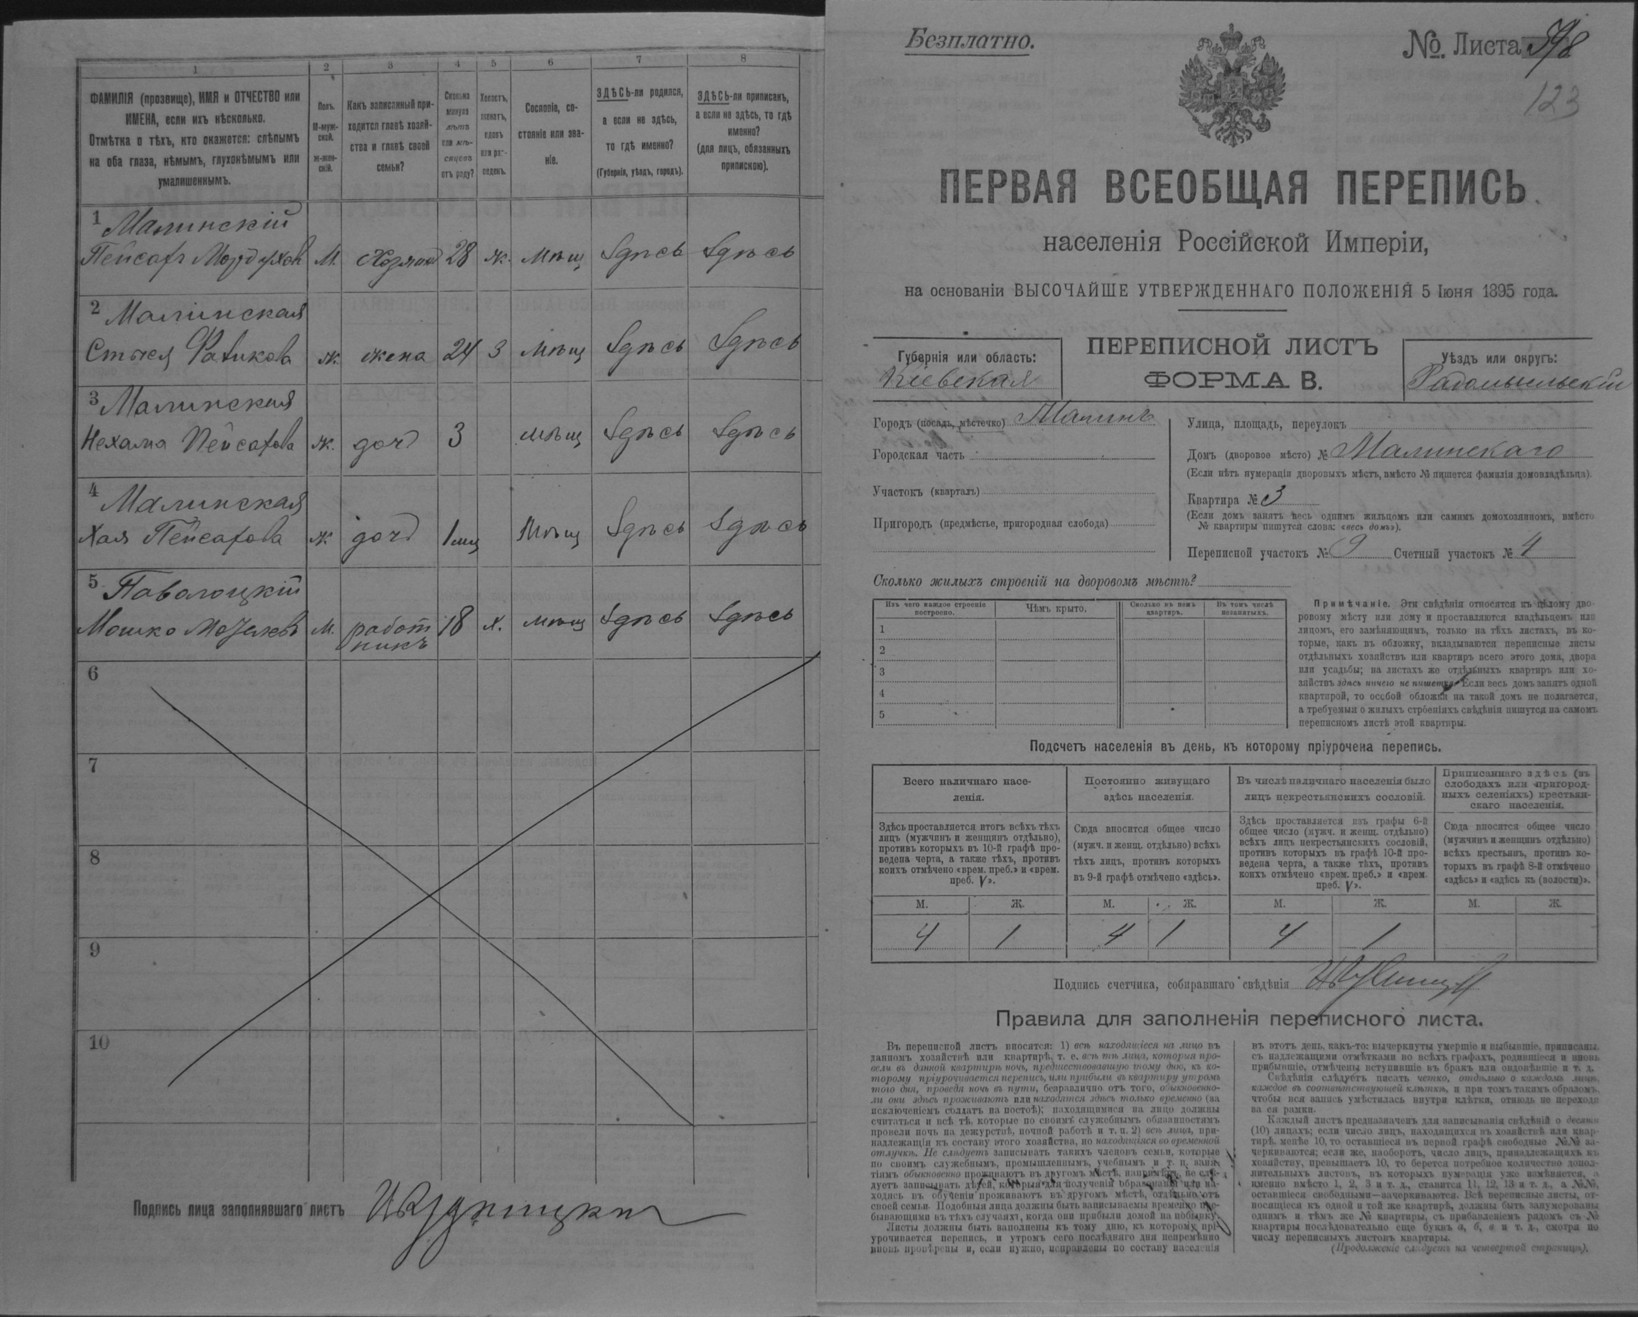 1
2
3
4
5
6
7
8
ФАМИЛІЯ (прозвище), ИМЯ и ОТЧЕСТВО или
ИМЕНА, если ихъ нѣсколько.
Отмѣтка о тѣхъ, кто окажется: слѣпымъ
на оба глаза, нѣмымъ, глухонѣмымъ или
умалишеннымъ.
Полъ.
М-муж-
ской.
ж-жен-
скій.
Какъ записанный при-
ходится главѣ хозяй-
ства и главѣ своей
семьи?
Сколько
минуло
лѣтъ
или мѣ-
сяцевъ
отъ роду?
Холостъ,
женатъ,
вдовъ
или раз-
веденъ.
Сословіе, со-
стояніе или зва-
ніе.
ЗДѢСЬ-ли родился,
а если не здѣсь,
то гдѣ именно?
(Губернія, уѣздъ, городъ).
ЗДѢСЬ-ли приписанъ,
а если не здѣсь, то гдѣ
именно?
(для лицъ, обязанныхъ
припискою).
1 Малинскій
Пейсахъ Мордухов М. хозяинъ 28 ж. мѣщ Здѣсь Здѣсь
2 Малинская
ж. жена 24 З мѣщ Здѣсь Здѣсь
3 Малинская
Нехама Пейсахова ж. дочь 3 мѣщ Здѣсь Здѣсь
4 Малинская
Хая Пейсахова ж дочь 1 мѣщ Здѣсь Здѣсь
5 Паволоцкій
Мошко М. работ 18 х. мѣщ Здѣсь Здѣсь
никъ
6
7
8
9
10
Подпись лица заполнявшаго листъ
Безплатно.
№. Листа
123
ПЕРВАЯ ВСЕОБЩАЯ ПЕРЕПИСЬ
населенія Россійской Имперіи,
на основаніи ВЫСОЧАЙШЕ УТВЕРЖДЕННАГО ПОЛОЖЕНІЯ 5 Іюня 1895 года.
Губернія или область:
Кіевская
ПЕРЕПИСНОЙ ЛИСТЪ
ФОРМА В.
Уѣздъ или округъ:
Радомысльскій
Городъ (посадъ, мѣстечко) Малинъ
Городская часть
Участокъ (кварталъ)
Пригородъ (предмѣстье, пригородная слобода)
Улица, площадь, переулокъ
Домъ (дворовое мѣсто) № Малинскаго
(Если нѣтъ нумераціи дворовыхъ мѣстъ, вмѣсто № пишется фамилія домовладѣльца)
Квартира № 3
(Если домъ занятъ весь однимъ жильцомъ или самимъ домохозяиномъ, вмѣсто
№ квартиры пишутся слова: «весь домъ»).
Переписной участокъ № 9 Счетный участокъ № 4
Сколько жилыхъ строеній на дворовомъ мѣстѣ?
Изъ чего каждое строеніе
построено.
Чѣмъ крыто.
Сколько въ немъ
квартиръ.
Въ томъ числѣ
незанятыхъ.
1
2
3
4
5
Примѣчаніе. Эти свѣдѣнія относятся къ цѣлому дво-
ровому мѣсту или дому и проставляются владѣльцемъ или
лицомъ, его замѣняющимъ, только на тѣхъ листахъ, въ ко-
торые, какъ въ обложку, вкладываются переписные листы
отдѣльныхъ хозяйствъ или квартиръ всего этого дома, двора
или усадьбы; на листахъ же отдѣльныхъ квартиръ или хо-
зяйствъ здѣсь ничего не пишется. Если весь домъ занятъ одной
квартирой, то особой обложки на такой домъ не полагается,
а требуемыя о жилыхъ строеніяхъ свѣдѣнія пишутся на самомъ
переписномъ листѣ этой квартиры.
Подсчетъ населенія въ день, къ которому пріурочена перепись.
Всего наличнаго насе-
ленія.
Здѣсь проставляется итогъ всѣхъ тѣхъ
лицъ (мужчинъ и женщинъ отдѣльно),
противъ которыхъ въ 10-й графѣ про-
ведена черта, а также тѣхъ, противъ
коихъ отмѣчено «врем. преб.» и «врем.
преб. V».
Постоянно живущаго
здѣсь населенія.
Сюда вносится общее число
(мужч. и женщ. отдѣльно) всѣхъ
тѣхъ лицъ, противъ которыхъ
въ 9-й графѣ отмѣчено «здѣсь».
Въ числѣ наличнаго населенія было
лицъ некрестьянскихъ сословій.
Здѣсь проставляется изъ графы 6-й
общее число (мужч. и женщ. отдѣльно)
всѣхъ лицъ некрестьянскихъ сословій,
противъ которыхъ въ графѣ 10-й про-
ведена черта, а также тѣхъ, противъ
коихъ отмѣчено «врем. преб.» и «врем.
преб. V».
Приписаннаго здѣсь (въ
слободахъ или пригород-
ныхъ селеніяхъ) крестьян-
скаго населенія.
Сюда вносится общее число
(мужчинъ и женщинъ отдѣльно)
всѣхъ крестьянъ, противъ ко-
торыхъ въ графѣ 8-й отмѣчено
«здѣсь» и «здѣсь къ (волости)».
М. Ж. М. Ж. М. Ж. М. Ж.
4 1 4 1 4 1
Подпись счетчика, собиравшаго свѣдѣнія
Правила для заполненія переписного листа.
Въ переписной листъ вносятся: 1) всѣ находящіеся на лицо въ
данномъ хозяйствѣ или квартирѣ, т. е. всѣ тѣ лица, которыя про-
вели въ данной квартирѣ ночь, предшествовавшую тому дню, къ ко-
торому пріурочивается перепись, или прибыли въ квартиру утромъ
того дня, проведя ночь въ пути, безразлично отъ того, обыкновенно-
ли они здѣсь проживаютъ или находятся здѣсь только временно (за
исключеніемъ солдатъ на постоѣ); находящимися на лицо должны
считаться и всѣ тѣ, которые по своимъ служебнымъ обязанностямъ
провели ночь на дежурствѣ, ночной работѣ и т. п. 2) всѣ лица, при-
надлежащія къ составу этого хозяйства, но находящіяся во временной
отлучкѣ. Не слѣдуетъ записывать такихъ членовъ семьи, которые
по своимъ служебнымъ, промышленнымъ, учебнымъ и т. п. заня-
тіямъ обыкновенно проживаютъ въ другомъ мѣстѣ, напримѣръ, не слѣ-
дуетъ записывать дѣтей, которыя для полученія образованія или на-
ходясь въ обученіи проживаютъ въ другомъ мѣстѣ, отдѣльно отъ
своей семьи. Подобныя лица должны быть записываемы временно пре-
бывающими въ тѣхъ случаяхъ, когда они прибыли домой на побывку.
Листы должны быть заполнены къ тому дню, къ которому прі-
урочивается перепись, и утромъ сего послѣдняго дня непремѣнно
вновь провѣрены и, если нужно, исправлены по составу населенія
въ этотъ день, какъ-то: вычеркнуты умершіе и выбывшіе, приписаны,
съ надлежащими отмѣтками во всѣхъ графахъ, родившіеся и вновь
прибывшіе, отмѣчены вступившіе въ бракъ или овдовѣвшіе и т. д.
Свѣдѣнія слѣдуетъ писать четко, отдѣльно о каждомъ лицѣ,
каждое въ соотвѣтствующей клѣткѣ, и при томъ такимъ образомъ,
чтобы вся запись умѣстилась внутри клѣтки, отнюдь не переходя
за ея рамки.
Каждый листъ предназначенъ для записыванія свѣдѣній о десяти
(10) лицахъ; если число лицъ, находящихся въ хозяйствѣ или квар-
тирѣ, менѣе 10, то оставшіеся въ первой графѣ свободные №№ за-
черкиваются; если же, наоборотъ, число лицъ, принадлежащихъ къ
хозяйству, превышаетъ 10, то берется потребное количество допол-
нительныхъ листовъ, въ которыхъ нумерація уже измѣняется, а
именно вмѣсто 1, 2, 3 и т. д., ставится 11, 12, 13 и т. д., а №№,
оставшіеся свободными—зачеркиваются. Всѣ переписные листы, от-
носящіеся къ одной и той же квартирѣ, должны быть занумерованы
однимъ и тѣмъ же № квартиры, съ прибавленіемъ рядомъ съ №
квартиры послѣдовательно еще буквъ а, б, в и т. д., смотря по
числу переписныхъ листовъ квартиры.
(Продолженіе слѣдуетъ на четвертой страницѣ).